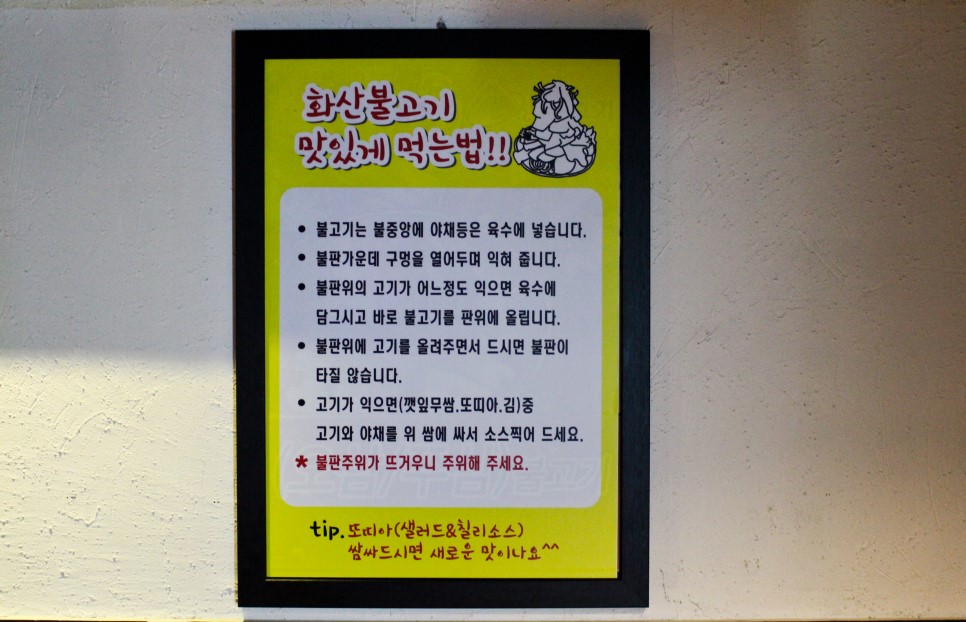 화산불고기
맛있게 먹는법!!
● 불고기는 불중앙에 야채등은 육수에 넣습니다.
● 불판가운데 구멍을 열어두며 익혀 줍니다.
● 불판위의 고기가 어느정도 익으면 육수에
담그시고 바로 불고기를 판위에 올립니다.
● 불판위에 고기를 올려주면서 드시면 불판이
타질 않습니다.
● 고기가 익으면(깻잎무쌈.또띠아.김)중
고기와 야채를 위 쌈에 싸서 소스찍어 드세요.
* 불판주위가 뜨거우니 주위해 주세요.
tip. 또띠아(샐러드&칠리소스)
쌈싸드시면 새로운 맛이나요^^